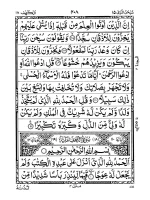 إِنَّ الَّذِينَ أُوتُوا الْعِلْمَ مِنْ قَبْلِهٖ إِذَا يُتْلٰى عَلَيْهِمْ
يَخِرُّونَ لِلْأَذْقَانِ سُجَّدًا وَيَقُولُونَ سُبْحٰنَ رَبِّنَا
إِنْ كَانَ وَعْدُ رَبِّنَا لَمَفْعُولًا وَيَخِرُّونَ لِلْأَذْقَانِ
يَبْكُونَ وَيَزِيدُهُمْ خُشُوعًا قُلِ ادْعُوا اللّٰهَ أَوِ
ادْعُوا الرَّحْمٰنَ أَيًّا مَّا تَدْعُوا فَلَهُ الْأَسْمَاءُ الْحُسْنٰى
وَلَا تَجْهَرْ بِصَلَاتِكَ وَلَا تُخَافِتْ بِهَا وَابْتَغِ بَيْنَ
ذٰلِكَ سَبِيلًا وَقُلِ الْحَمْدُ لِلّٰهِ الَّذِي لَمْ يَتَّخِذْ
وَلَدًا وَلَمْ يَكُنْ لَّهُ شَرِيكٌ فِي الْمُلْكِ وَلَمْ يَكُنْ
لَّهُ وَلِيٌّ مِّنَ الذُّلِّ وَكَبِّرْهُ تَكْبِيرًا
بِسْمِ اللّٰهِ الرَّحْمٰنِ الرَّحِيمِ
الْحَمْدُ لِلّٰهِ الَّذِي أَنْزَلَ عَلٰى عَبْدِهِ الْكِتٰبَ وَلَمْ
يَجْعَلْ لَّهُ عِوَجًا قَيِّمًا لِّيُنْذِرَ بَأْسًا شَدِيدًا